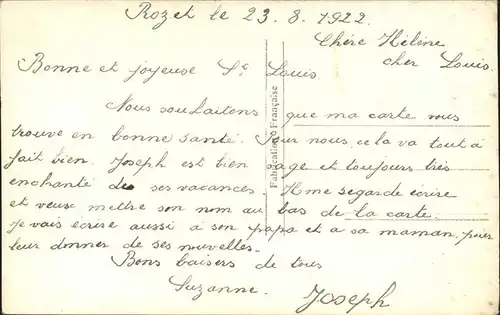 Rozet le 23. 8. 1922.
Chére Hélène
cher Louis.
Bonne et joyeuse St Louis.
Nous souhaitons que ma carte vous
trouve en bonne santé. Pour nous cela va tout à
fait bien. Joseph est bien sage et toujours très
enchanté de ses vacances. Il me regarde écrire
et veux mettre son nom au bas de la carte.
je vais écrire aussi à son papa et a sa maman, pour
leur donner de ses nouvelles.
Bons baisers de tous
Suzanne.
Joseph
Fabrication Française